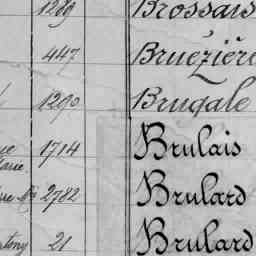 1289 Brossais
447 Bruézière
1290 Brugale
1714 Brulais
2782 Brulard
21 Brulard